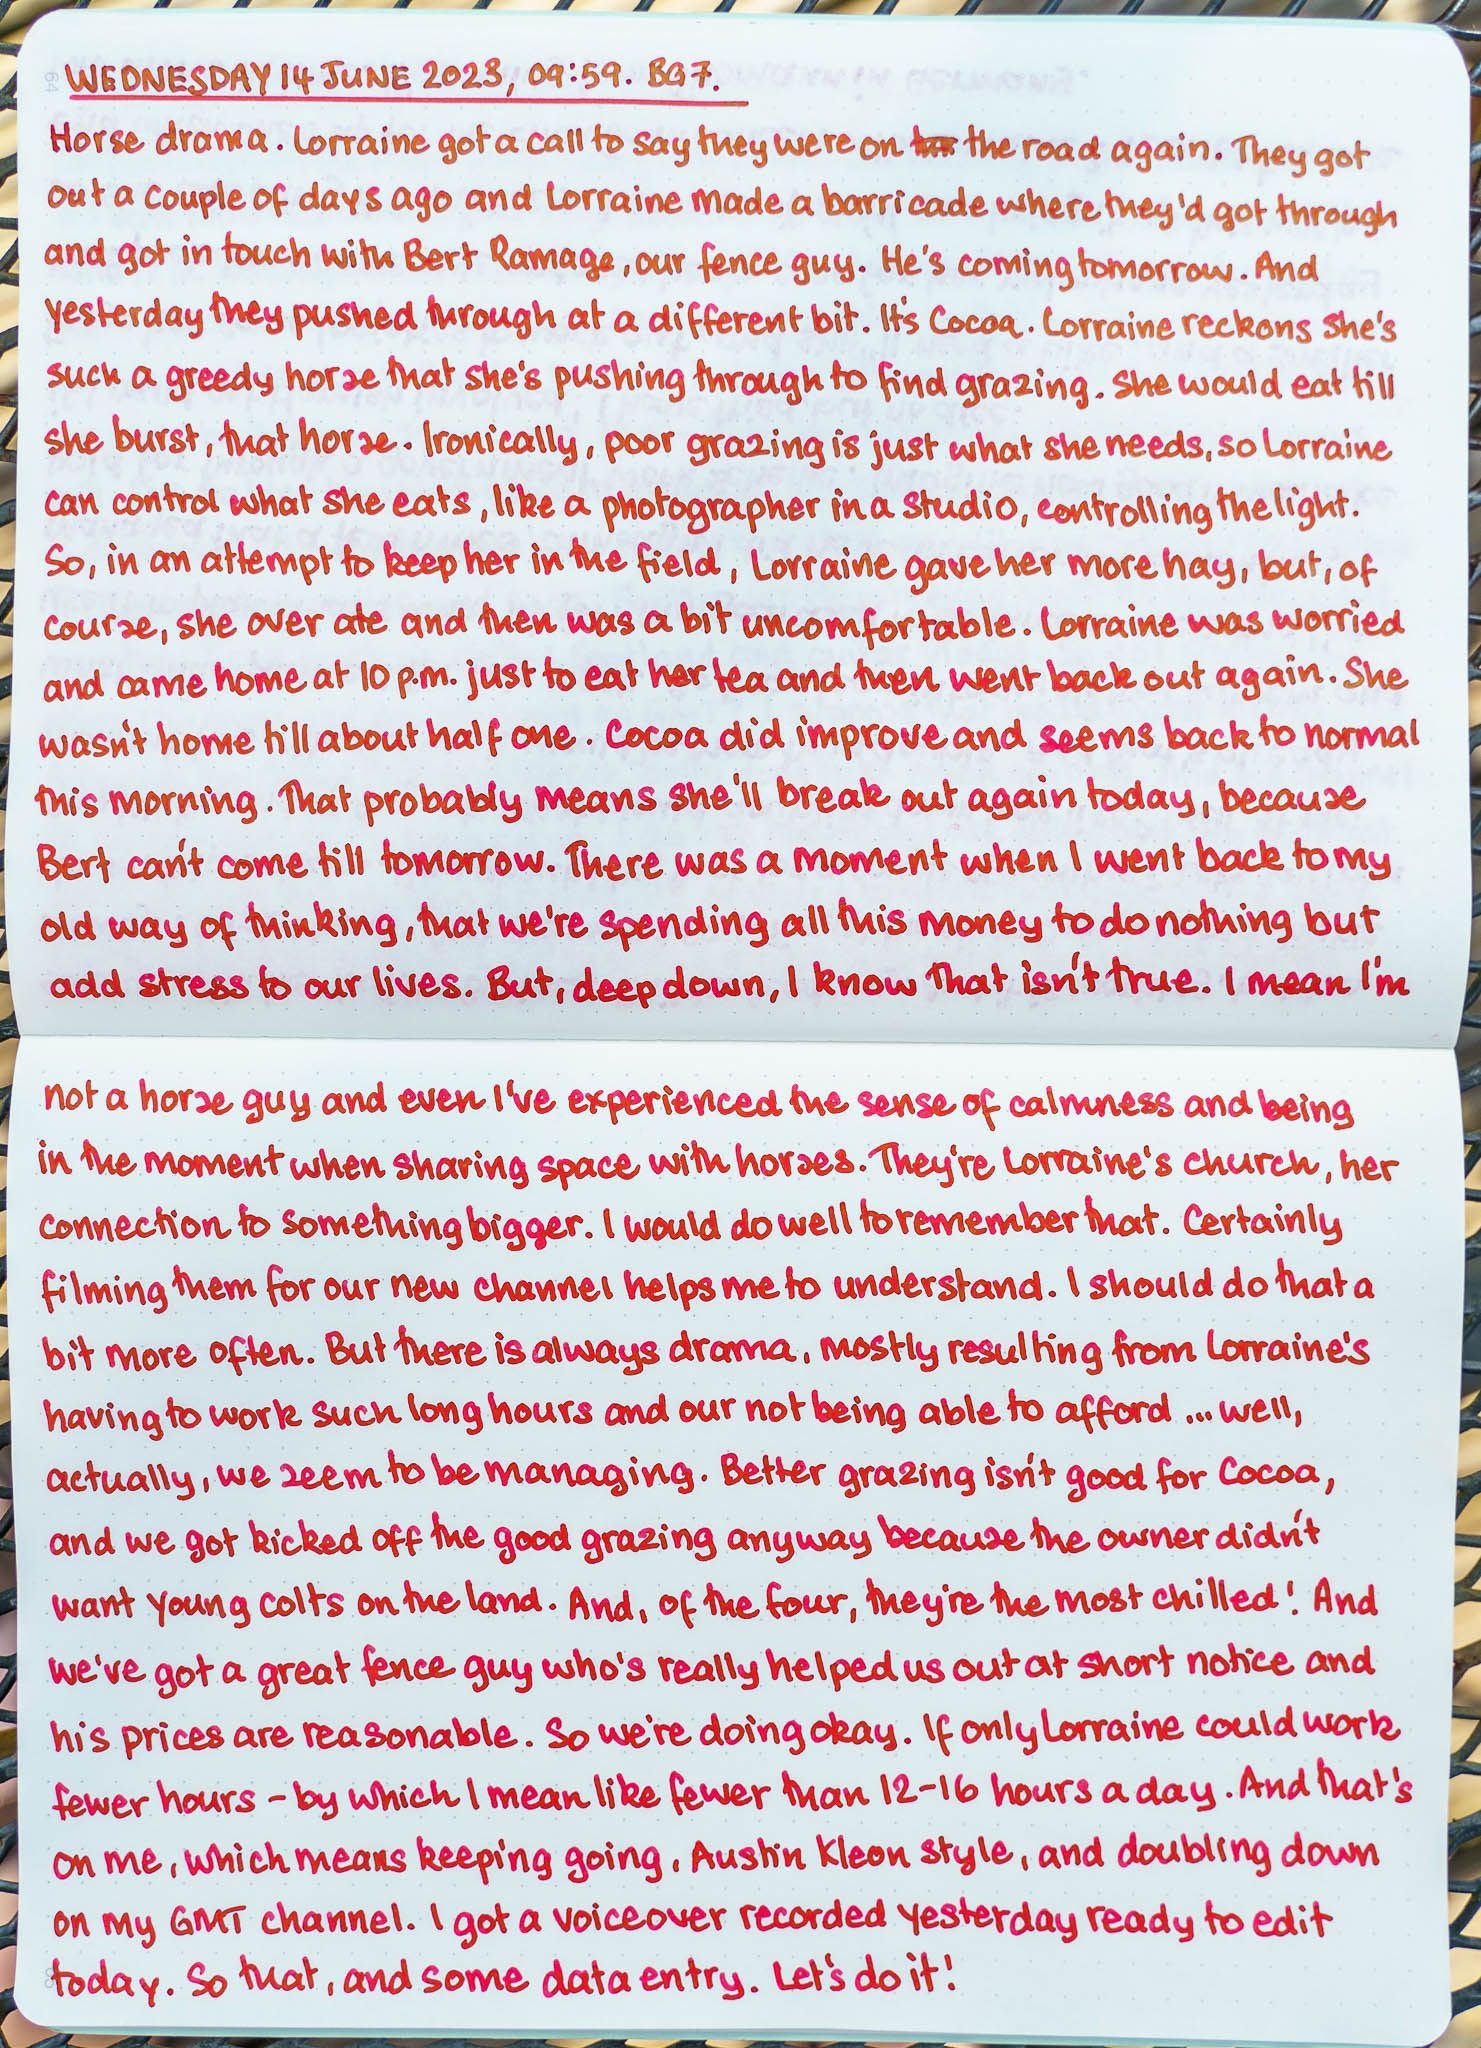 WEDNESDAY 14 JUNE 2023, 09:59. BG7.
Horse drama. Lorraine got a call to say they were on the road again. They got
out a couple of days ago and Lorraine made a barricade where they'd got through
and got in touch with Bert Ramage, our fence guy. He's coming tomorrow. And
yesterday they pushed through at a different bit. It's Cocoa. Lorraine reckons she's
such a greedy horse that she's pushing through to find grazing. She would eat till
she burst, that horse. Ironically, poor grazing is just what she needs, so Lorraine
can control what she eats, like a photographer in a studio, controlling the light.
So, in an attempt to keep her in the field, Lorraine gave her more hay, but, of
course, she over ate and then was a bit uncomfortable. Lorraine was worried
and came home at 10 p.m. just to eat her tea and then went back out again. She
wasn't home till about half one. Cocoa did improve and seems back to normal
this morning. That probably means she'll break out again today, because
Bert can't come till tomorrow. There was a moment when I went back to my
old way of thinking, that we're spending all this money to do nothing but
add stress to our lives. But, deep down, I know that isn't true. I mean I'm
not a horse guy and even I've experienced the sense of calmness and being
in the moment when sharing space with horses. They're Lorraine's church, her
connection to something bigger. I would do well to remember that. Certainly
filming them for our new channel helps me to understand. I should do that a
bit more often. But there is always drama, mostly resulting from Lorraine's
having to work such long hours and our not being able to afford ... well,
actually, we seem to be managing. Better grazing isn't good for Cocoa,
and we got kicked off the good grazing anyway because the owner didn't
want young colts on the land. And, of the four, they're the most chilled! And
we've got a great fence guy who's really helped us out at short notice and
his prices are reasonable. So we're doing okay. If only Lorraine could work
fewer hours – by which I mean like fewer than 12-16 hours a day. And that's
on me, which means keeping going, Austin Kleon style, and doubling down
on my GMT channel. I got a voiceover recorded yesterday ready to edit
today. So that, and some data entry. Let's do it!